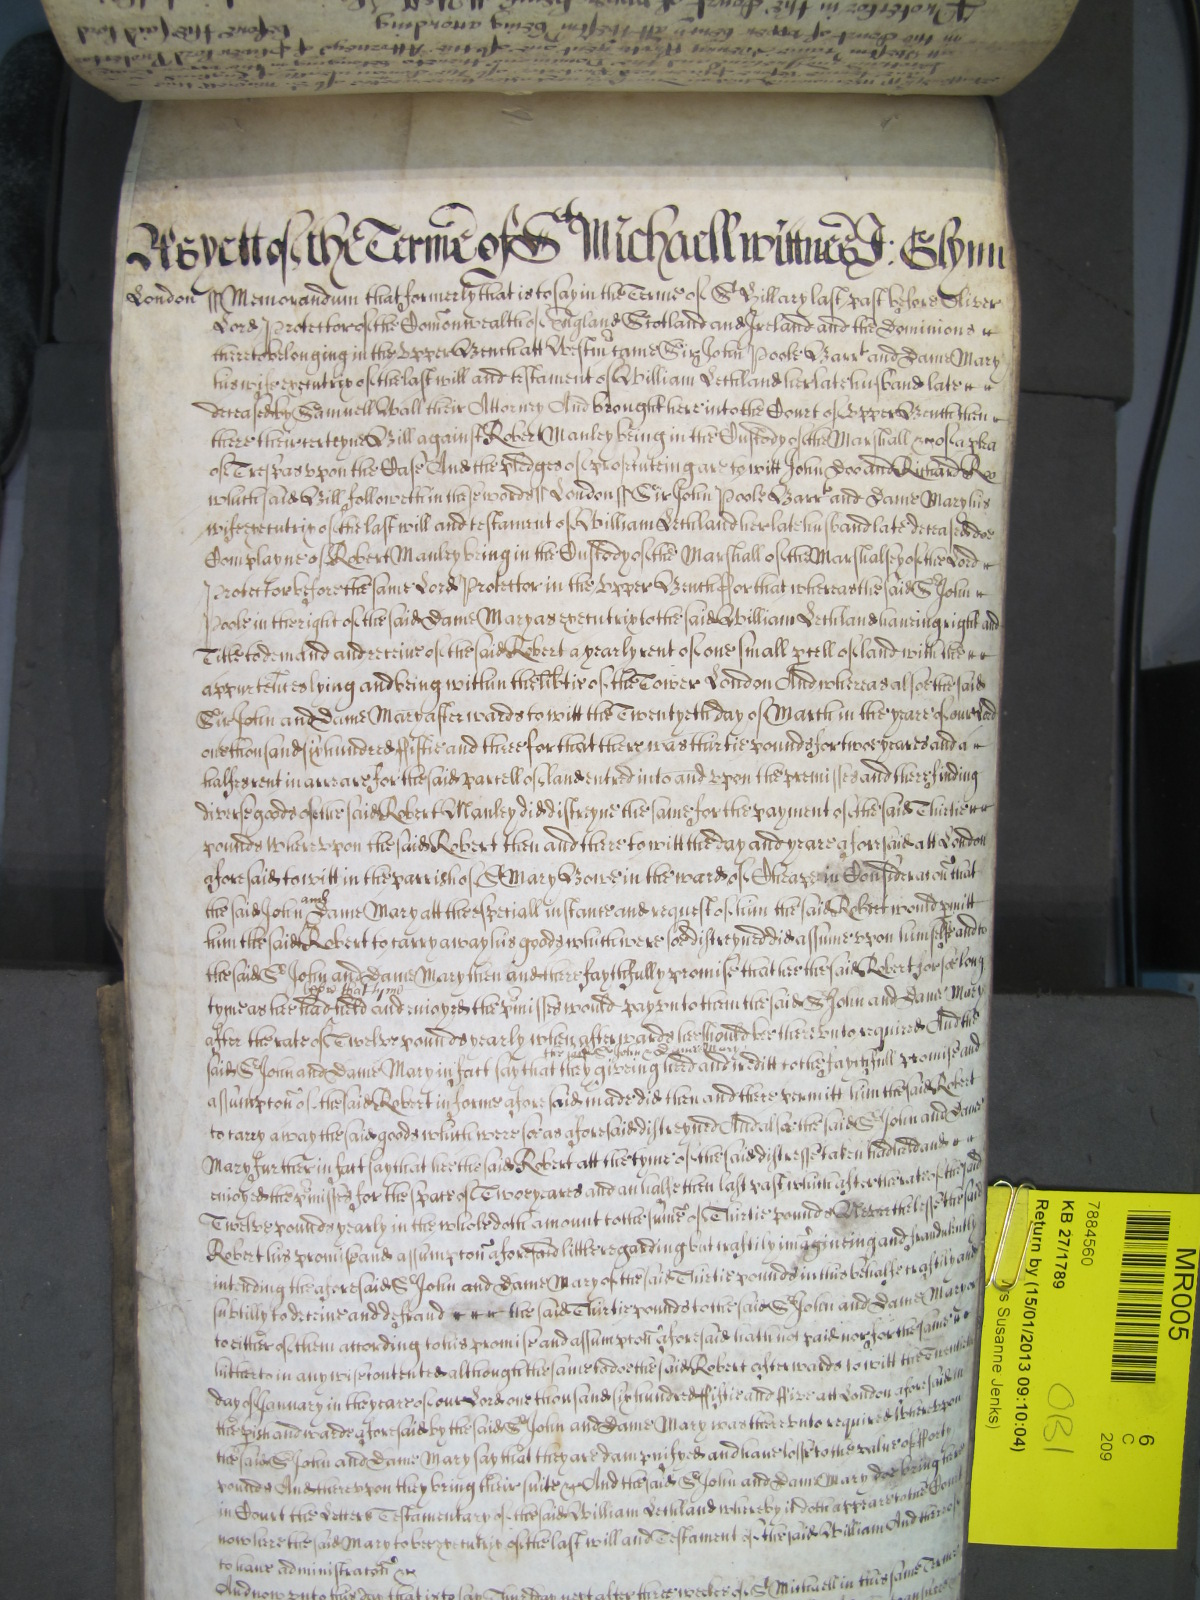 As yett of the Terme of St Michaell wittnes J: Glynn
London ss Memorandum that formerly that is to say in the Terme of St Hillary last past before Oliver
Lord Protector of the Comonwealth of England Scotland and Ireland and the Dominions
thereto belonging in the Upper Bench att Westmr came Sir John Poole Barrt and Dame Mary
his wife executrix of the last will and testament of William Lethland her late husband late
deceased by Samuell Wall their Attorney And brought here into the Court of Upper Bench then
there their certeyne Bill against Robert Manley being in the Custody of the Marshall &c of a plea
of Trespas upon the Case And the pledges of prosecuteing are to witt John Doo and Richard Roo
which said Bill followeth in these words ss London ss Sir John Poole Barrt and Dame Mary his
wife executrix of the last will and testament of William Lethland her late husband late deceased doe
Complayne of Robert Manley being in the Custody of the Marshall of the Marshalsey of the Lord
Protector before the same Lord Protector in the Upper Bench For that whereas the said Sr John
Poole in the right of the said Dame Mary as executrix to the said William Lethland haveing right and
Title to demand and receive of the said Robert a yearly rent of one small pcell of land with the
appurtences lying and being within the libtie of the Tower London And whereas alsoe the said
Sir John and Dame Mary afterwards to witt the Twentyeth day of March in the yeare of our Lord
one thousand six hundred Fiftie and three for that there was thirtie pounds for twoe yeares and a
halfes rent in arreare for the said parcell of land entred into and upon the premisses and there finding
diverse goods of the said Robert Manley did distreyne the same for the payment of the said Thirtie
pounds whereupon the said Robert then and there to witt the day and yeare aforesaid att London
aforesaid to witt in the parrish of St Mary Bowe in the ward of Cheape in Consideracon that
the said John and Dame Mary att the especiall instance and request of him the said Robert would pmitt
him the said Robert to carry away his goods which were soe distreyned did assume upon himselfe and to
the said Sr John and Dame Mary then and there faythfully promise that hee the said Robert for soe long
tyme as hee had held and enioyed the pmisses would pay unto them the said Sr John and Dame Mary
after the rate of Twelve pounds yearly when afterwards hee should bee thereunto required And the
said Sr John and Dame Mary in fact say that they the said Sr John & Dame Mary giveing heed and creditt to the faythfull promise and
assumpton of the said Robert in forme aforesaid made did then and there permitt him the said Robert
to carry away the said goods which were soe as aforesaid distreyned And alsoe the said Sr John and Dame
Mary further in fact say that hee the said Robert att the tyme of the said distresse taken had held and
enioyed the pmisses for the space of Twoe yeares and an halfe then last past which after the rate of the said
Twelve pounds yearly in the whole doth amount to the sume of Thirtie pounds Neverthelesse the said
Robert his promise and assumpton aforesaid little regarding but craftily imagineing and fraudulently
intending the aforesaid Sr John and Dame Mary of the said Thirtie pounds in this behalfe craftily and
subtilly to deceive and defraud the said Thirtie pounds to the said Sr John and Dame Mary or
to either of them according to his promise and assumpton aforesaid hath not paid nor for the same
hitherto in any wise contented although the same to doe the said Robert afterwards to witt the Twentieth
day of January in the yeare of our Lord one thousand six hundred Fiftie and Five att London aforesaid in
the pish and warde aforesaid by the said Sr John and Dame Mary was thereunto required Whereupon
the said Sr John and Dame Mary say that they are dampnifyed and have losse to the value of Forty
pounds And thereupon they bring their suite &c And the said Sr John and Dame Mary doe bring here
in Court the Letters Testamentary of the said William Lethland whereby it doth appeare to the Court
now here the said Mary to bee executrix of the last will and Testament of the said William And thereof
to have administraton &c
And now unto this day that is to say Thursday next after three weekes of St Michaell in this same Terme
MR005
6
C
209
7884560
KB 27/1789
Return by (15/01/2013 09:10:04)
Susanne Jenks)
OBI